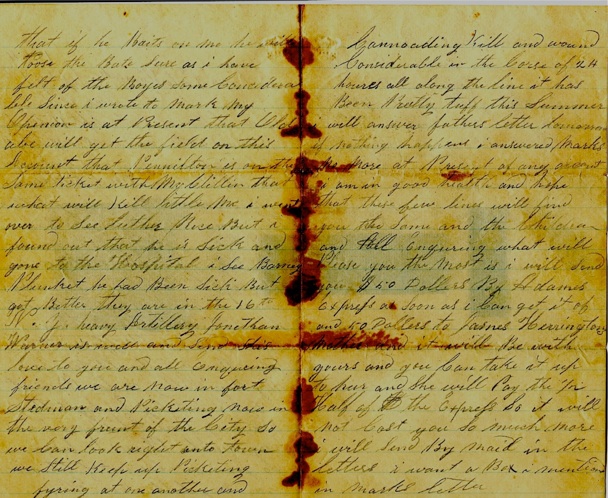 that if he Waits on me he will
Loose the Bak Sure as i have
felt of the Boyes Some Conciderá
ble Since i wrote to Mark My
Opinion is at Present that
will get the field on this
account that Pennilton is on the
Same ticket with McClellan that
is what will Kill little Mc i went
over to See Luther Nice But i
found out that he is Sick and
gone to the Hospital i See Barney
Plunket he had Been Sick But
got Better they are in the 16th
N.Y. heavy Artillery Jonathan
Warner is well and Send his
love to you and all enquireing
friends we are now in fort
Stedman and Picketing now in
the very front of the City So
we Can look right into town
we Still Keep up Picketing
fyring at one another and
Cannoading Kill and wound
Considerable in the Corse of 24
houres all along the line it has
Been Pretty tuff this Summer
i will answer fathers letter tomorrow
if nothing happens i answered Marks
no more at Present of any account
i am in good health and hope
that these few lines will find
you the Same and the Children
and all Enquring what will
Please you the Most is i will Send
you $50 Dollers By Adames
Express as soon as i Can get it of
and 50 Dollers to James Herrington
Mother and it will Be with
yours and you Can take it up
to her and She will Pay the
half of the Express So it will
not Cost you So much more
i will Send By Maid in the
letters i want a Box i mention
in Marks letter